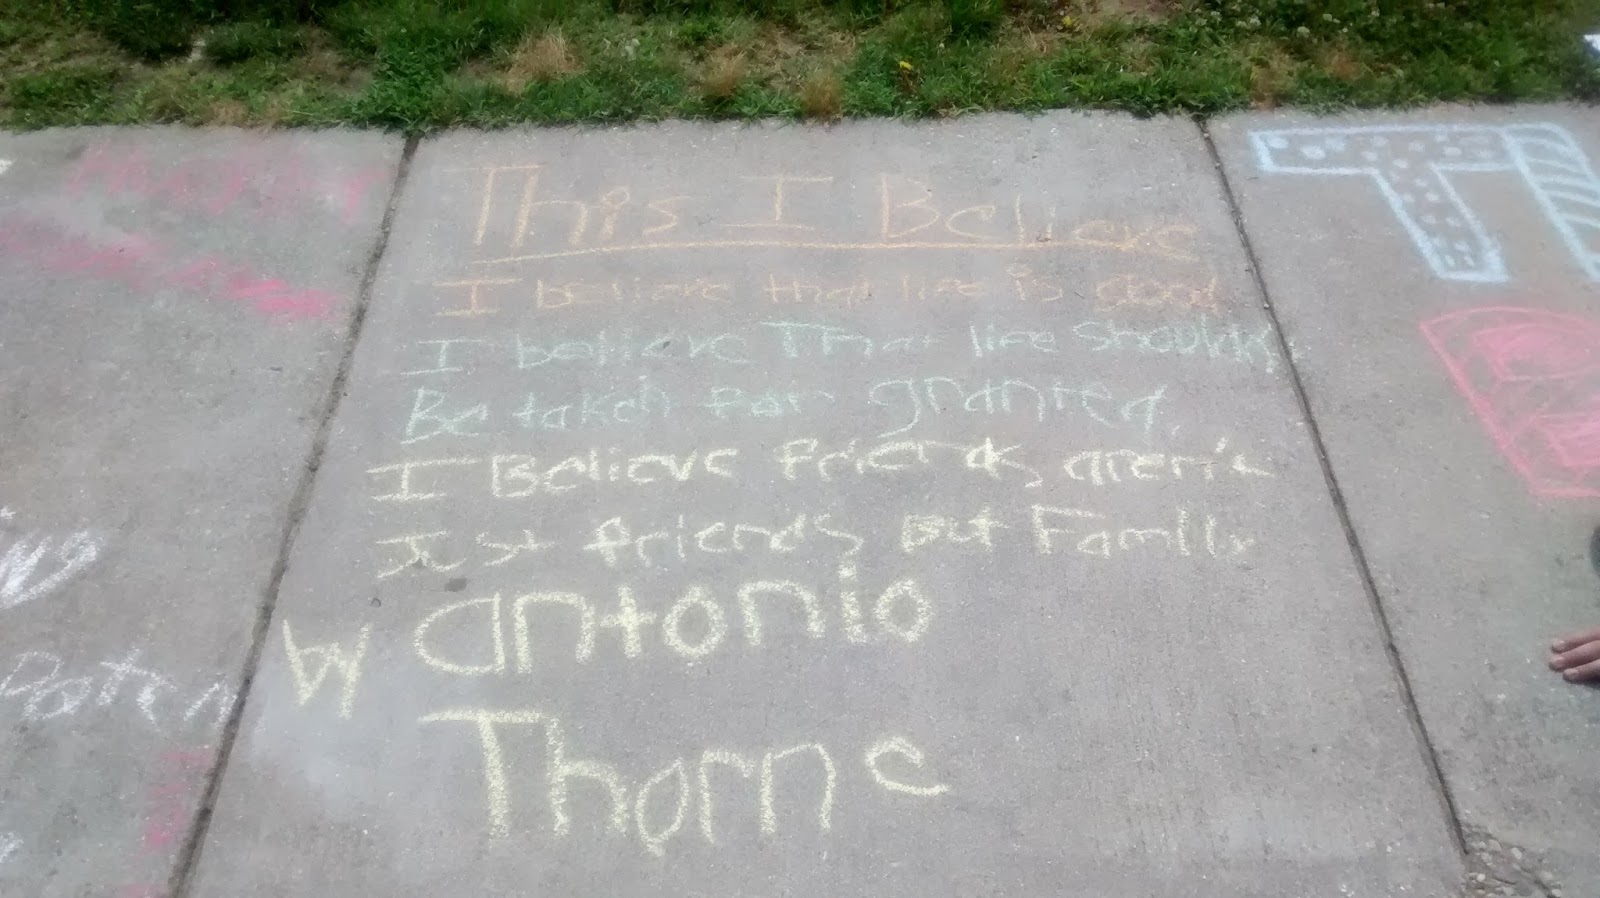 This I Believe
I believe that life is good
I believe That life Shouldn't
Be taken for granted.
I Believe friends aren't
Just friends But Family
by antonio
Thorne